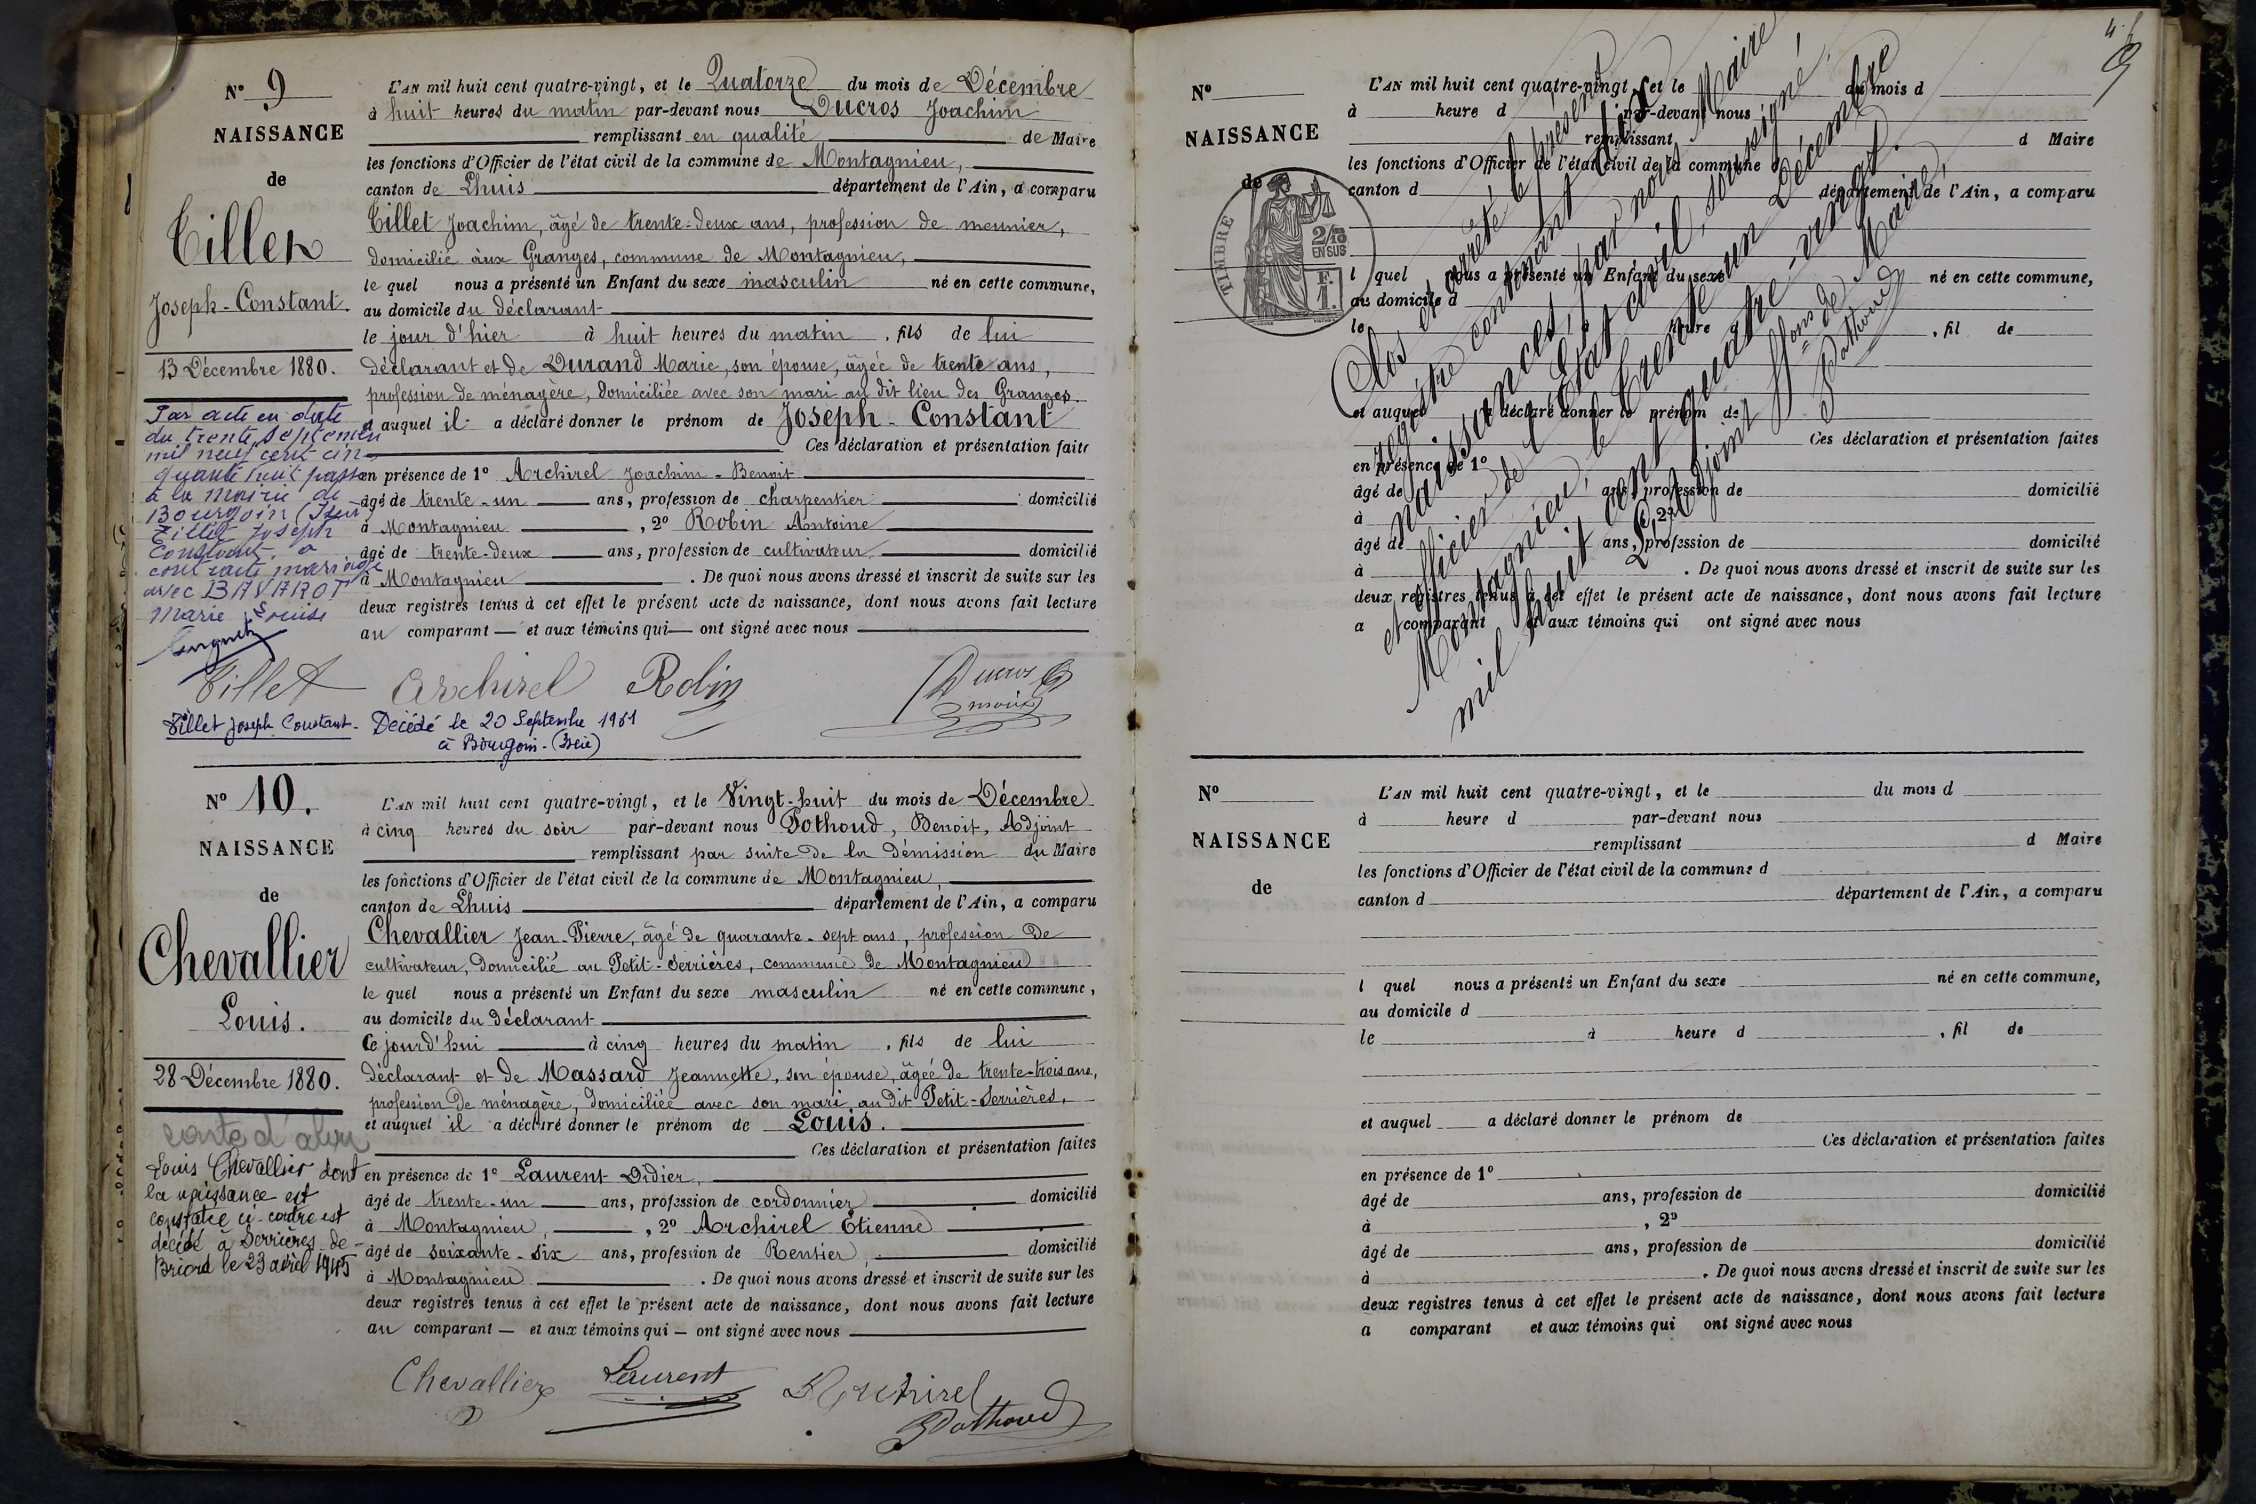 N° 9
NAISSANCE
de
Tillet
Joseph-Constant.
13 Décembre 1880.
Par acte en date
du trente septembre
mil neuf cent cin-
quante huit passé
à la mairie de
Bourgoin (Isère
Tillet Joseph
Constant a
contracté mariage
avec BAVAROT
Marie Louise
L'AN mil huit cent quatre-vingt, et le Quatorze du mois de Décembre
à huit heures du matin par-devant nous Ducros Joachim
remplissant en qualité de Maire
les fonctions d'Officier de l'état civil de la commune de Montagnieu,
canton de Lhuis département de l'Ain, a comparu
Tillet Joachim, âgé de trente-deux ans, profession de meunier,
domicilié aux Granges, commune de Montagnieu,
le quel nous a présenté un Enfant du sexe masculin né en cette commune,
au domicile du déclarant
le jour d'hier à huit heures du matin, fils de lui
déclarant et de Durand Marie, son épouse, âgée de trente ans,
profession de ménagère, domiciliée avec son mari au dit lieu des Granges.
et auquel il a déclaré donner le prénom de Joseph-Constant
Ces déclaration et présentation faites
en présence de 1° Archirel Joachim-Benoit
âgé de trente-un ans, profession de charpentier domicilié
à Montagnieu, 2° Robin Antoine
âgé de trente-deux ans, profession de cultivateur domicilié
à Montagnieu. De quoi nous avons dressé et inscrit de suite sur les
deux registres tenus à cet effet le présent acte de naissance, dont nous avons fait lecture
au comparant — et aux témoins qui — ont signé avec nous
Tillet Archirel Robin Ducros
maire
Tillet Joseph Constant. Décédé le 20 Septembre 1961
à Bourgoin-(Isère)
N° 10.
NAISSANCE
de
Chevallier
Louis.
28 Décembre 1880.
Louis Chevallier dont
la naissance est
constatée ci-contre est
décédé à Serrières-de-
Briord le 23 avril 1945
L'AN mil huit cent quatre-vingt, et le Vingt-huit du mois de Décembre
à cinq heures du soir par-devant nous Pothoud, Benoit, Adjoint
remplissant par suite de la démission du Maire
les fonctions d'Officier de l'état civil de la commune de Montagnieu,
canton de Lhuis département de l'Ain, a comparu
Chevallier Jean-Pierre, âgé de quarante-sept ans, profession de
cultivateur, domicilié au Petit-Serrières, commune de Montagnieu
le quel nous a présenté un Enfant du sexe masculin né en cette commune,
au domicile du déclarant
Ce jourd'hui à cinq heures du matin, fils de lui
déclarant et de Massard Jeannette, son épouse, âgée de trente-trois ans,
profession de ménagère, domiciliée avec son mari au dit Petit-Serrières,
et auquel il a déclaré donner le prénom de Louis.
Ces déclaration et présentation faites
en présence de 1° Laurent Didier,
âgé de trente-un ans, profession de cordonnier domicilié
à Montagnieu, 2° Archirel Etienne
âgé de soixante-six ans, profession de Rentier, domicilié
à Montagnieu. De quoi nous avons dressé et inscrit de suite sur les
deux registres tenus à cet effet le présent acte de naissance, dont nous avons fait lecture
au comparant — et aux témoins qui — ont signé avec nous
Chevallier Laurent Archirel
Pothoud
N°
NAISSANCE
de
TIMBRE
2/10
EN SUS
F.
1.
L'AN mil huit cent quatre-vingt, et le du mois d
à heure d par-devant nous
remplissant d Maire
les fonctions d'Officier de l'état civil de la commune d
canton d département de l'Ain, a comparu
l quel nous a présenté un Enfant du sexe né en cette commune,
au domicile d
le heure , fil de
et auquel a déclaré donner le prénom de
Ces déclaration et présentation faites
en présence de 1°
âgé de ans, profession de domicilié
à , 2°
âgé de ans, profession de domicilié
à . De quoi nous avons dressé et inscrit de suite sur les
deux registres tenus à cet effet le présent acte de naissance, dont nous avons fait lecture
a comparant et aux témoins qui ont signé avec nous
Clos et arrêté le présent
registre contenant dix
naissances, par nous Maire
et officier de l'État civil, soussigné,
Montagnieu, le trente-un Décembre
mil huit cent quatre-vingt.
L'adjoint ffons de Maire,
Pothoud
N°
NAISSANCE
de
L'AN mil huit cent quatre-vingt, et le du mois d
à heure d par-devant nous
remplissant d Maire
les fonctions d'Officier de l'état civil de la commune d
canton d département de l'Ain, a comparu
l quel nous a présenté un Enfant du sexe né en cette commune,
au domicile d
le à heure d , fil de
et auquel a déclaré donner le prénom de
Ces déclaration et présentation faites
en présence de 1°
âgé de ans, profession de domicilié
à , 2°
âgé de ans, profession de domicilié
à . De quoi nous avons dressé et inscrit de suite sur les
deux registres tenus à cet effet le présent acte de naissance, dont nous avons fait lecture
a comparant et aux témoins qui ont signé avec nous